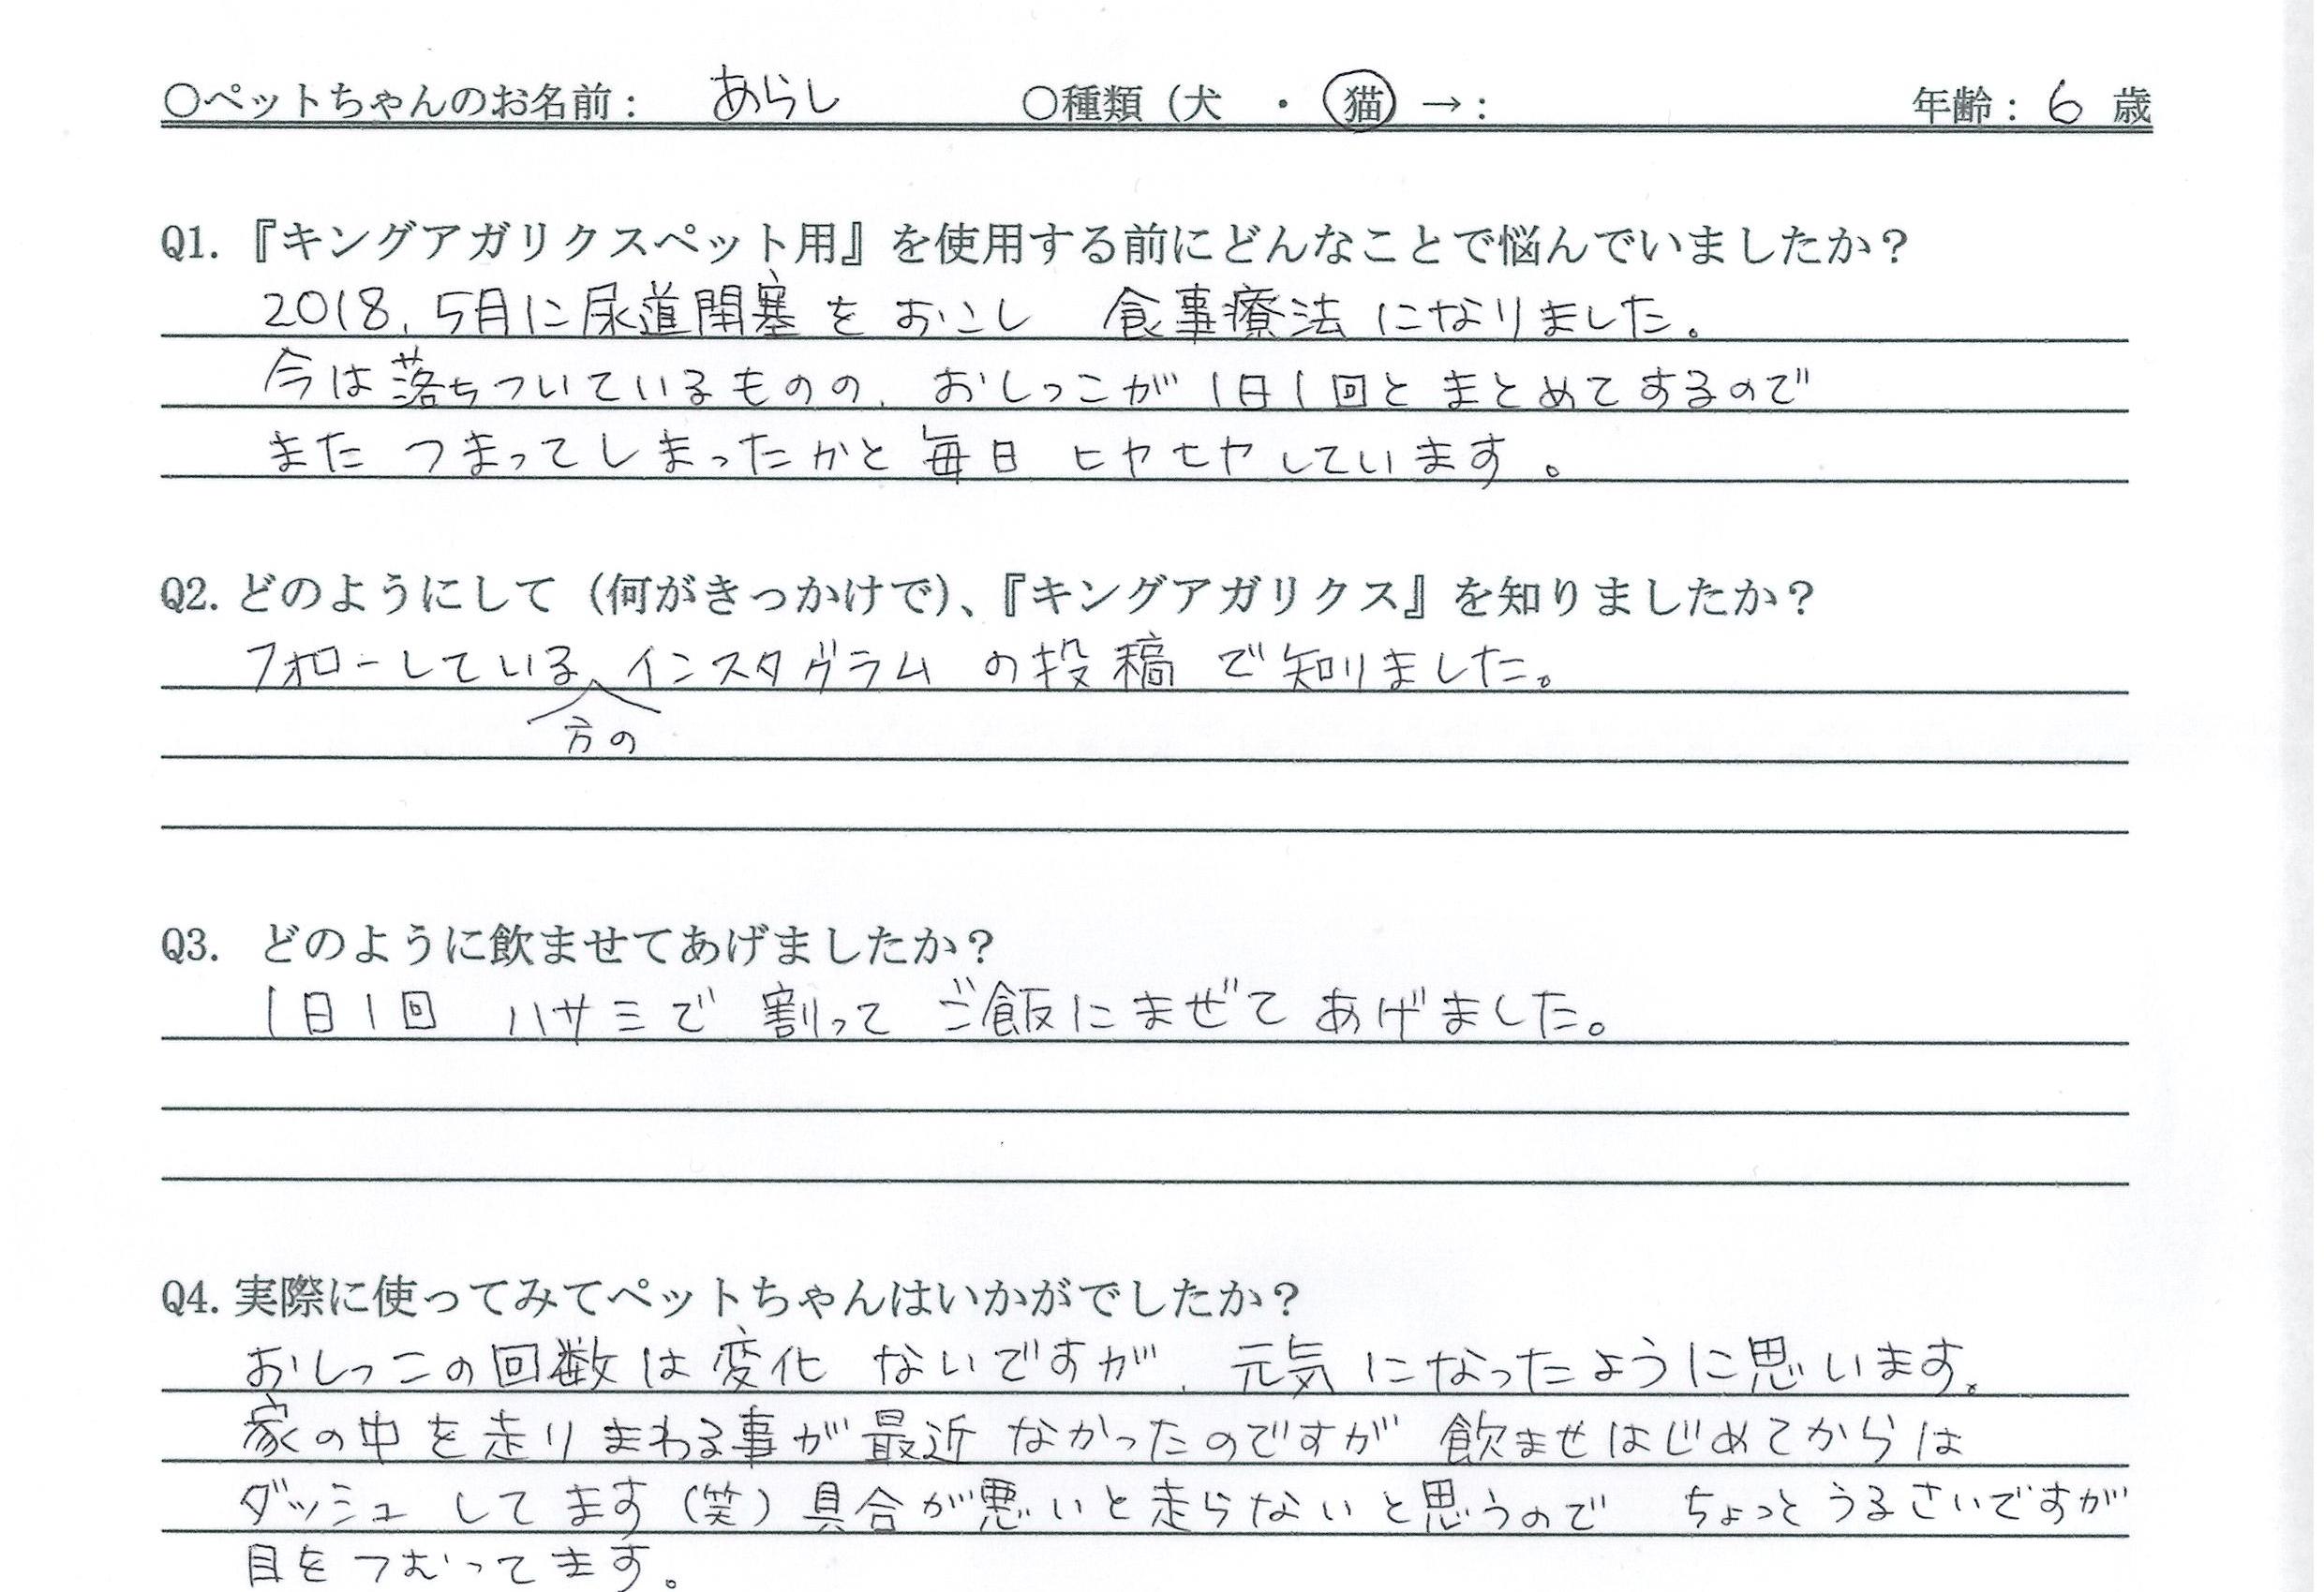 ○ペットちゃんのお名前： あらし ○種類（犬 ・ 猫）→： 年齢：6 歳
Q1.『キングアガリクスペット用』を使用する前にどんなことで悩んでいましたか？
2018.5月に尿道閉塞をおこし 食事療法になりました。
今は落ちついているものの、おしっこが1日1回とまとめてするので
また つまってしまったかと毎日 ヒヤヒヤしています。
Q2.どのようにして（何がきっかけで）、『キングアガリクス』を知りましたか？
フォローしている インスタグラムの投稿で知りました。
方の
Q3. どのように飲ませてあげましたか？
1日1回 ハサミで 割って ご飯にまぜて あげました。
Q4.実際に使ってみてペットちゃんはいかがでしたか？
おしっこの回数は変化 ないですが、元気になったように思います。
家の中を走りまわる事が最近なかったのですが 飲ませはじめてからは
ダッシュしてます（笑）具合が悪いと走らないと思うので ちょっとうるさいですが
目をつむってます。